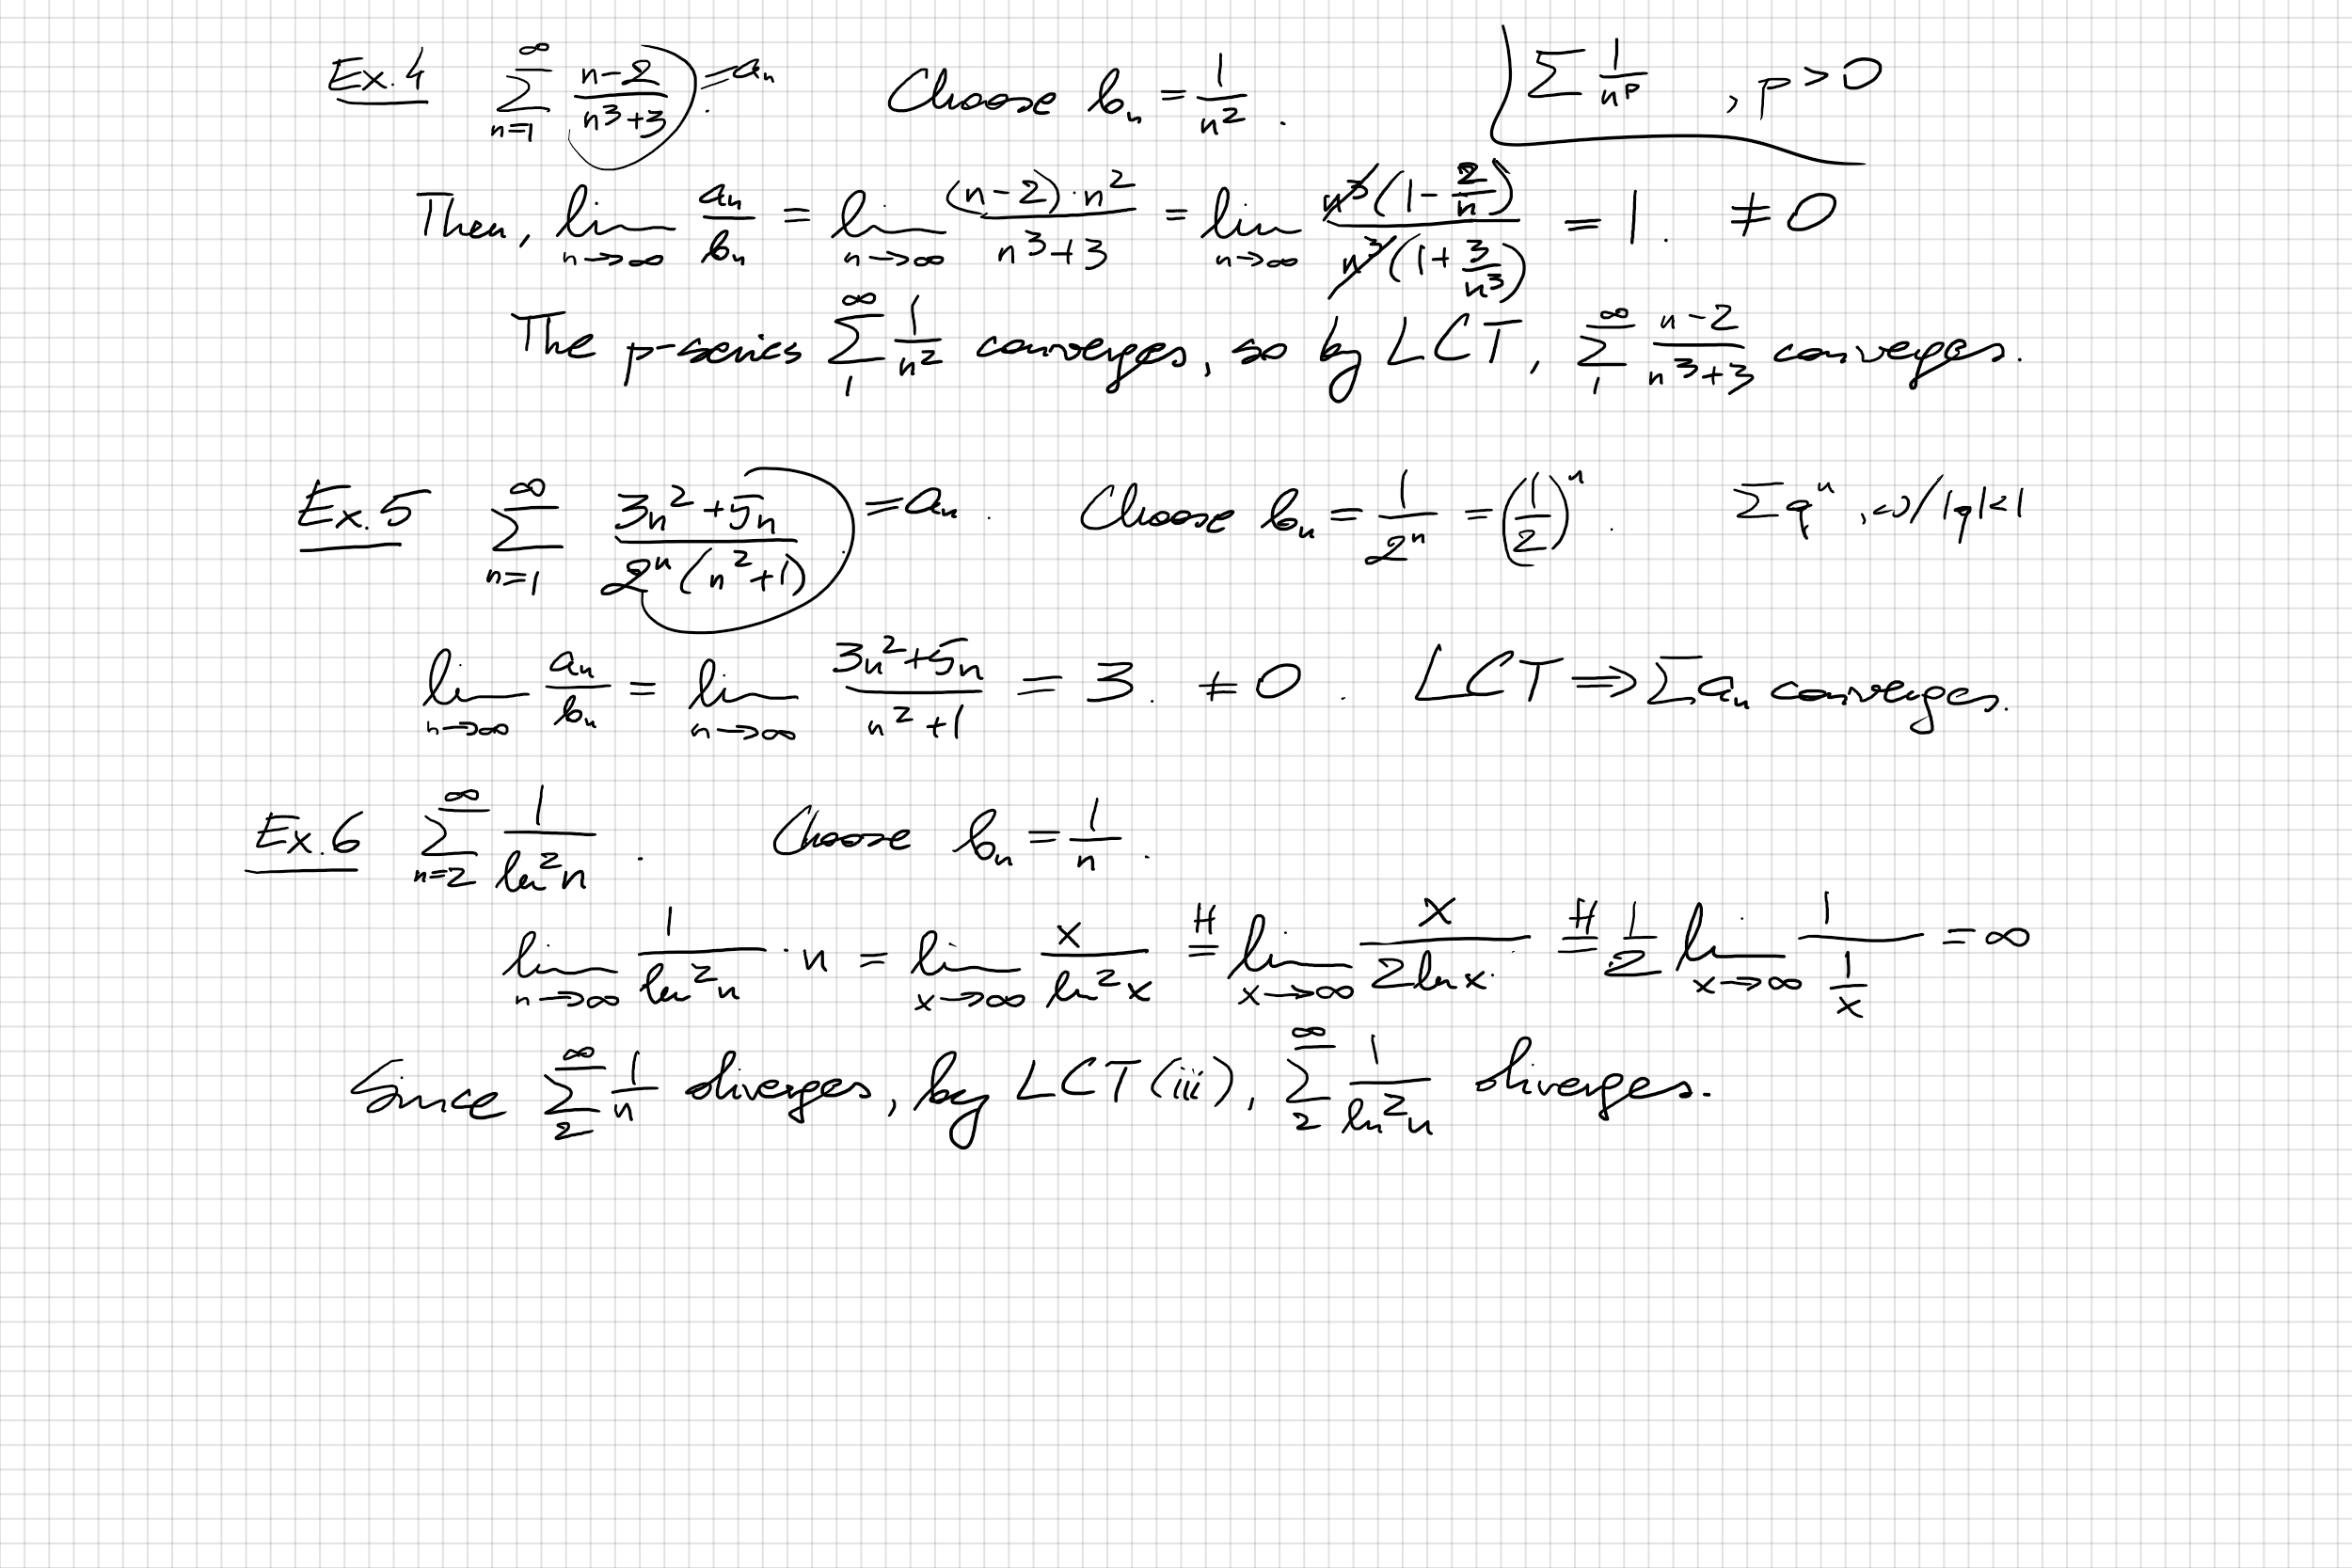 Ex.4 ∑_{n=1}^{∞} (n-2)/(n³+3) = aₙ. Choose bₙ = 1/n². ∑ 1/n^p, p>0
Then, lim_{n→∞} aₙ/bₙ = lim_{n→∞} (n-2)·n²/(n³+3) = lim_{n→∞} n³(1-2/n)/(n³(1+3/n³)) = 1. ≠ 0
The p-series ∑_{1}^{∞} 1/n² converges, so by LCT, ∑_{1}^{∞} (n-2)/(n³+3) converges.
Ex.5 ∑_{n=1}^{∞} (3n²+5n)/(2ⁿ(n²+1)) = aₙ. Choose bₙ = 1/2ⁿ = (1/2)ⁿ. ∑qⁿ, w/ |q|<1
lim_{n→∞} aₙ/bₙ = lim_{n→∞} (3n²+5n)/(n²+1) = 3. ≠ 0. LCT ⇒ ∑aₙ converges.
Ex.6 ∑_{n=2}^{∞} 1/ln²n. Choose bₙ = 1/n.
lim_{n→∞} 1/ln²n · n = lim_{x→∞} x/ln²x =^H lim_{x→∞} x/(2lnx) =^H 1/2 lim_{x→∞} 1/(1/x) = ∞
Since ∑_{2}^{∞} 1/n diverges, by LCT(iii), ∑_{2}^{∞} 1/ln²n diverges.